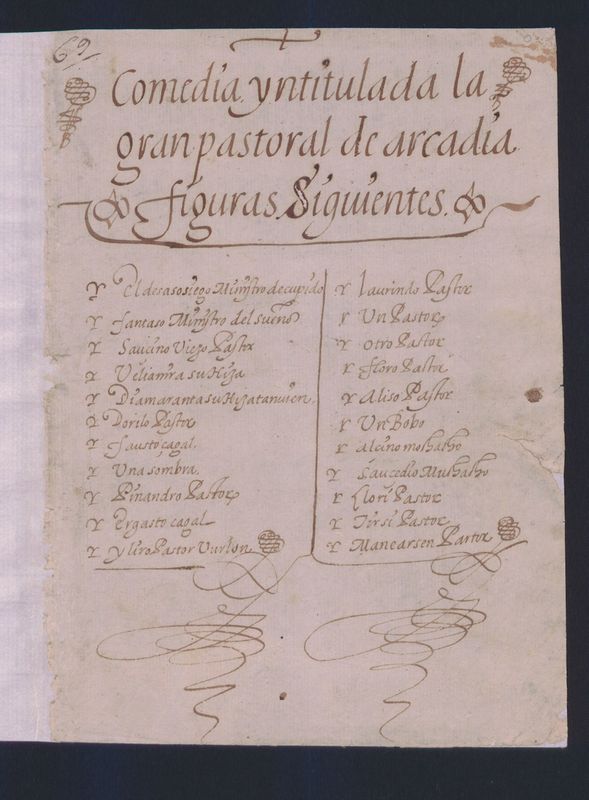 69
Comedia yntitulada la
gran pastoral de arcadia
figuras Siguientes
El desasosiego Minystro de cupido
fantaso Minystro del sueño
Saucino Viejo Pastor
Veliamra su Hiza
Diamaranta su Hiza tanvien
Dorilo Pastor
fausto çagal
Una sombra
Pinandro Pastor
Ergasto çagal
y liro Pastor Vurlon
laurindo Pastor
Un Pastor
otro Pastor
floro Pastor
Aliso Pastor
Un Bobo
alcino mochacho
Saucedio Muchacho
Clori Pastor
Tirsi Pastor
Manearsen Partor